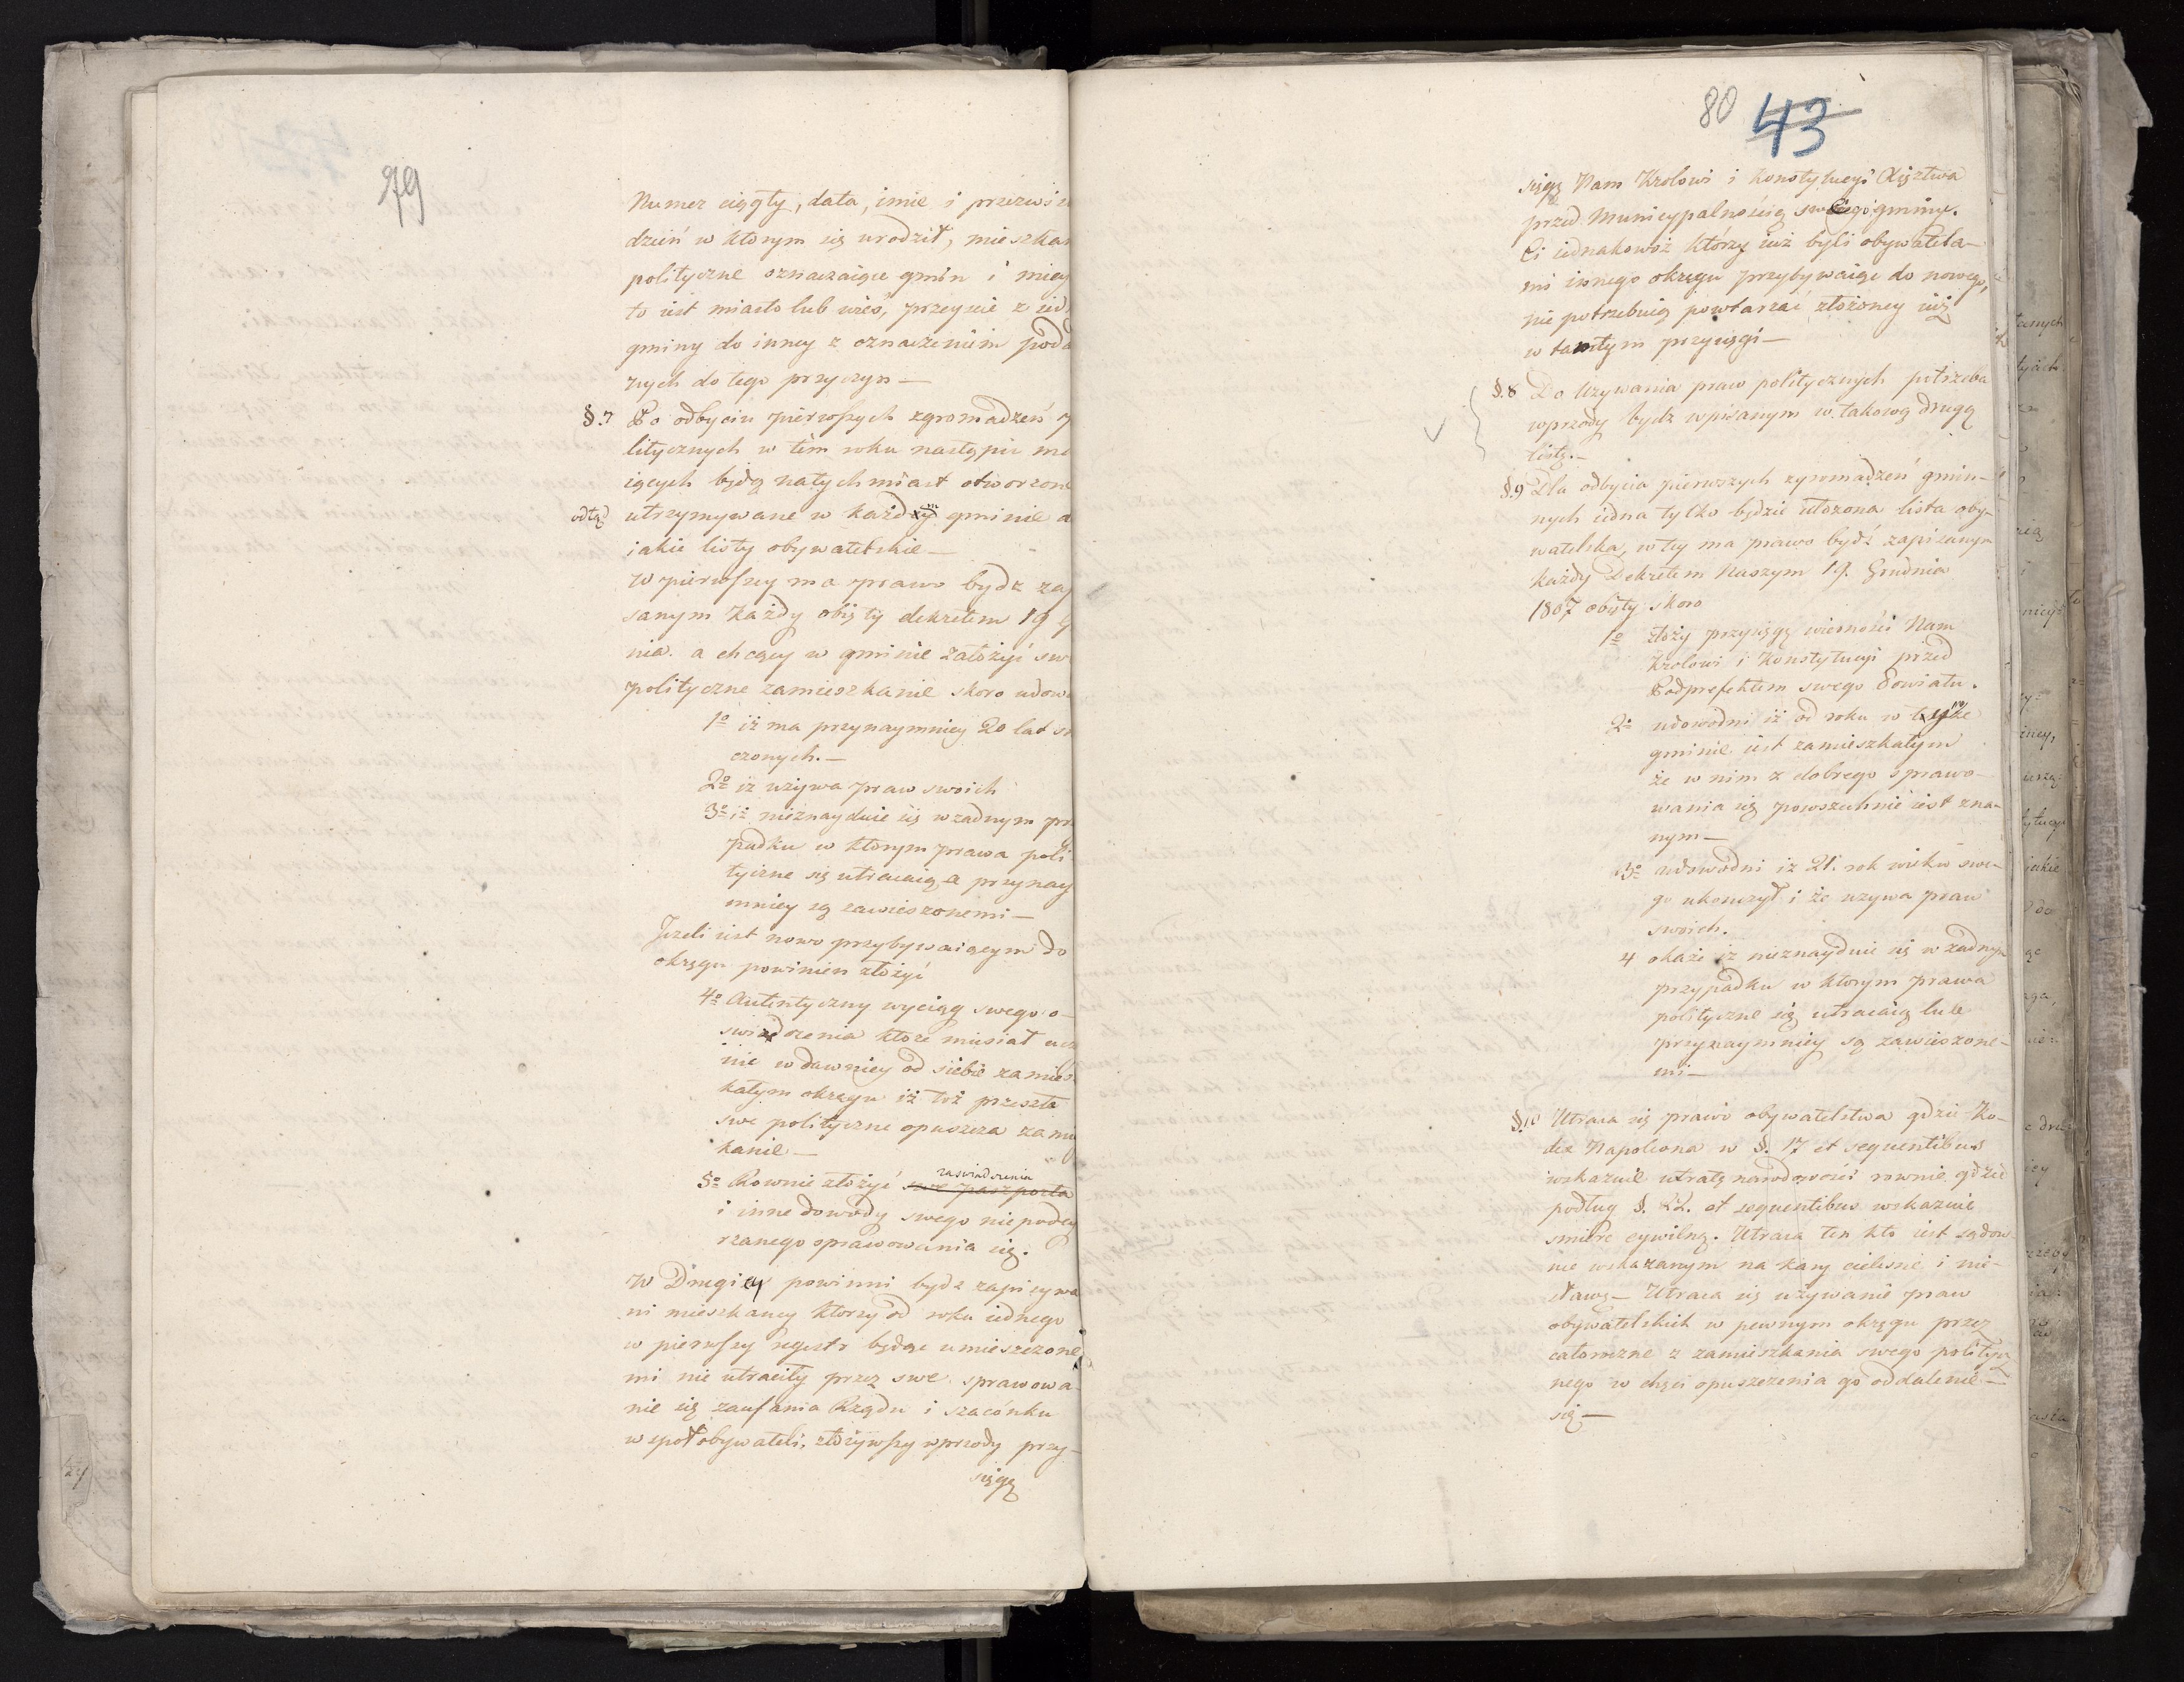 79
Numer ciągły, data, imie i przezwi
dzień w ktorym się urodził, mieszkan
polityczne oznaczaiące gmin i miey
to iest miasto lub wieś, przeyscie z ied
gminy do inney z oznaczeniem poda
nych do tego przyczyn —
§. 7 Po odbyciu pierwszych zgromadzeń p
litycznych w tém roku nastąpić ma
iących będą natychmiast otworzone
odtąd utrzymywane w każdey gminie d
iakie listy obywatelskie —
W pierwszey ma prawo bydz zap
sanym każdy obięty dekretem 19 G
nia. a chcący w gminie założyć sw
polityczne zamieszkanie skoro udow
1º iż ma przynaymniey 20 lat s
czonych. —
2º iż używa praw swoich
3º iż nieznayduie się w żadnym prz
padku w ktorym prawa poli
tyczne się utracaią, a przynay
mniey są zawieszonemi —
Jeżeli iest nowo przybywaiącym do
okręgu powinien złożyć
4º Autentyczny wyciąg swego o-
swiadczenia ktore musiał ucz
nić w dawniey od siebie zamiesz
kałym okręgu iż też przeszłe
swe polityczne opuszcza zamie
kanie —
zaswiadczenia
5º Rownie złożyć swe paszporta
i inne dowody swego niepodey
rzanego sprawowania się.
W Drugiey powinni bydz zapisywa
ni mieszkancy ktorzy od roku iednego
w pierwszy regestr będąc umieszczone
mi nie utracili przez swe sprawowa
nie się zaufania Rządu i szacónku
wspołobywateli, złożywszy wprzody przy-
sięgę
80 43
sięgę Nam Krolowi i Konstytucyi Xięztwa
przed Municypalnością swoiegó gminy.
Ci iednakowoż którzy iuż byli obywatela-
mi innego okręgu przybywaiąc do nowego,
nie potrzebuią powtarzać złożoney iuż
w tamtym przysięgi —
§. 8 Do Używania praw politycznych potrzeba
wprzody bydz wpisanym w takową drugą
listę. —
§. 9 Dla odbycia pierwszych zgromadzeń gmin-
nych iedna tylko będzie ułożona lista oby-
watelska, w tey ma prawo bydź zapisanym
każdy Dekretem Naszym 19. Grudnia
1807 obięty skoro
1º złoży przysięgę wierności Nam
Krolowi i Konstytucyi przed
Podprefektem swego Powiatu.
2º udowodni iż od roku w teyże
gminie iest zamieszkałym
że w nim z dobrego sprawo-
wania się powszechnie iest zna-
nym —
3º udowodni iż 21. rok wieku swe-
go ukonczył i że używa praw
swoich.
4 okaże iż nieznayduie się w żadnym
przypadku w ktorym prawa
polityczne się utracaią lub
przynaymniey są zawieszone-
mi —
§. 10 Utraca się prawo obywatelstwa gdzie Ko-
dex Napoleona w §. 17 et sequentibus
wskazuie utratę narodowości rownie gdzie
podług §. 22. et sequentibus wskazuie
smierć cywilną. Utraca ten kto iest sądow
nie wskazanym na kary cielesne i nie-
sławę — Utraca się używanie praw
obywatelskich w pewnym okręgu przez
całoroczne z zamieszkania swego politycz
nego w chęci opuszczenia go oddalenie —
się —